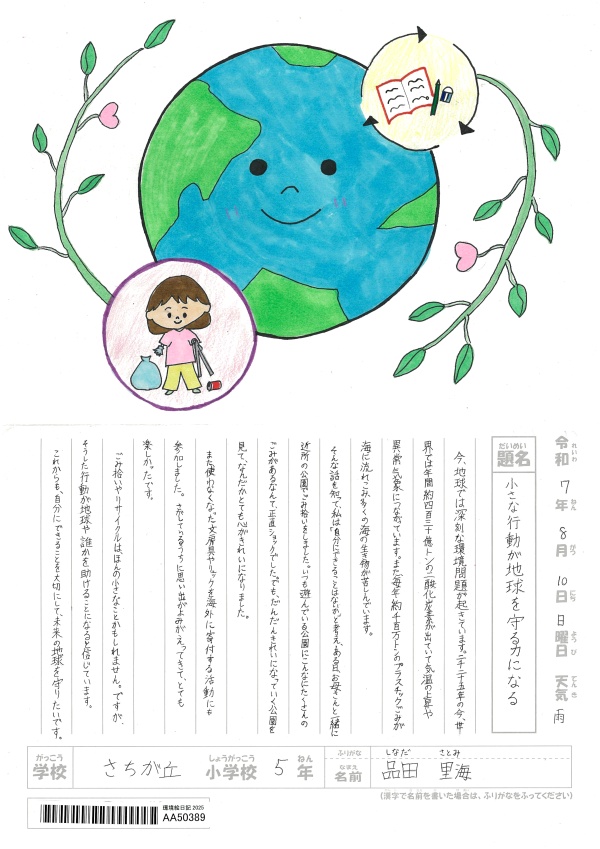 令和 7年 8月 10日 日曜日 天気 雨
れいわ ねん がつ にち ようび てんき
だいめい
題名 小さな行動が地球を守る力になる
今、地球では深刻な環境問題が起きています。二千二十五年の今、世
界では年間約四百三十億トンの二酸化炭素が出ていて気温の上昇や
異常気象につながっています。また毎年約千百万トンのプラスチックごみが
海に流れこみ、多くの海の生き物が苦しんでいます。
そんな話を知って、私は「自分にできることはないか」と考え、ある日、お母さんと一緒に
近所の公園でごみ拾いをしました。いつも遊んでいる公園にこんなにたくさんの
ごみがあるなんて、正直ショックでした。でも、だんだんきれいになっていく公園を
見て、なんだかとても心がきれいになりました。
また使わなくなった文房具やリュックを海外に寄付する活動にも
参加しました。さがしてるうちに思い出がよみがえってきて、とても
楽しかったです。
ごみ拾いやリサイクルは、ほんの小さなことかもしれません。ですが、
そうした行動が地球や誰かを助けることになると信じています。
これからも、自分にできることを大切にして未来の地球を守りたいです。
がっこう しょうがっこう ねん ふりがな しなだ さとみ
学校 さちが丘 小学校 5年 なまえ 名前 品田 里海
(漢字で名前を書いた場合は、ふりがなをふってください)
環境絵日記 2025
AA50389